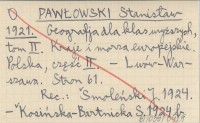 O PAWŁOWSKI Stanisław
1921. Geografja dla klas wyższych,
tom II. Kraje i morza europejskie.
Polska, część II — Lwów-War-
szawa. Stron 61.
Rec.: Smoleński J. 1924.
-"Kosińska-Bartnicka S. 1924